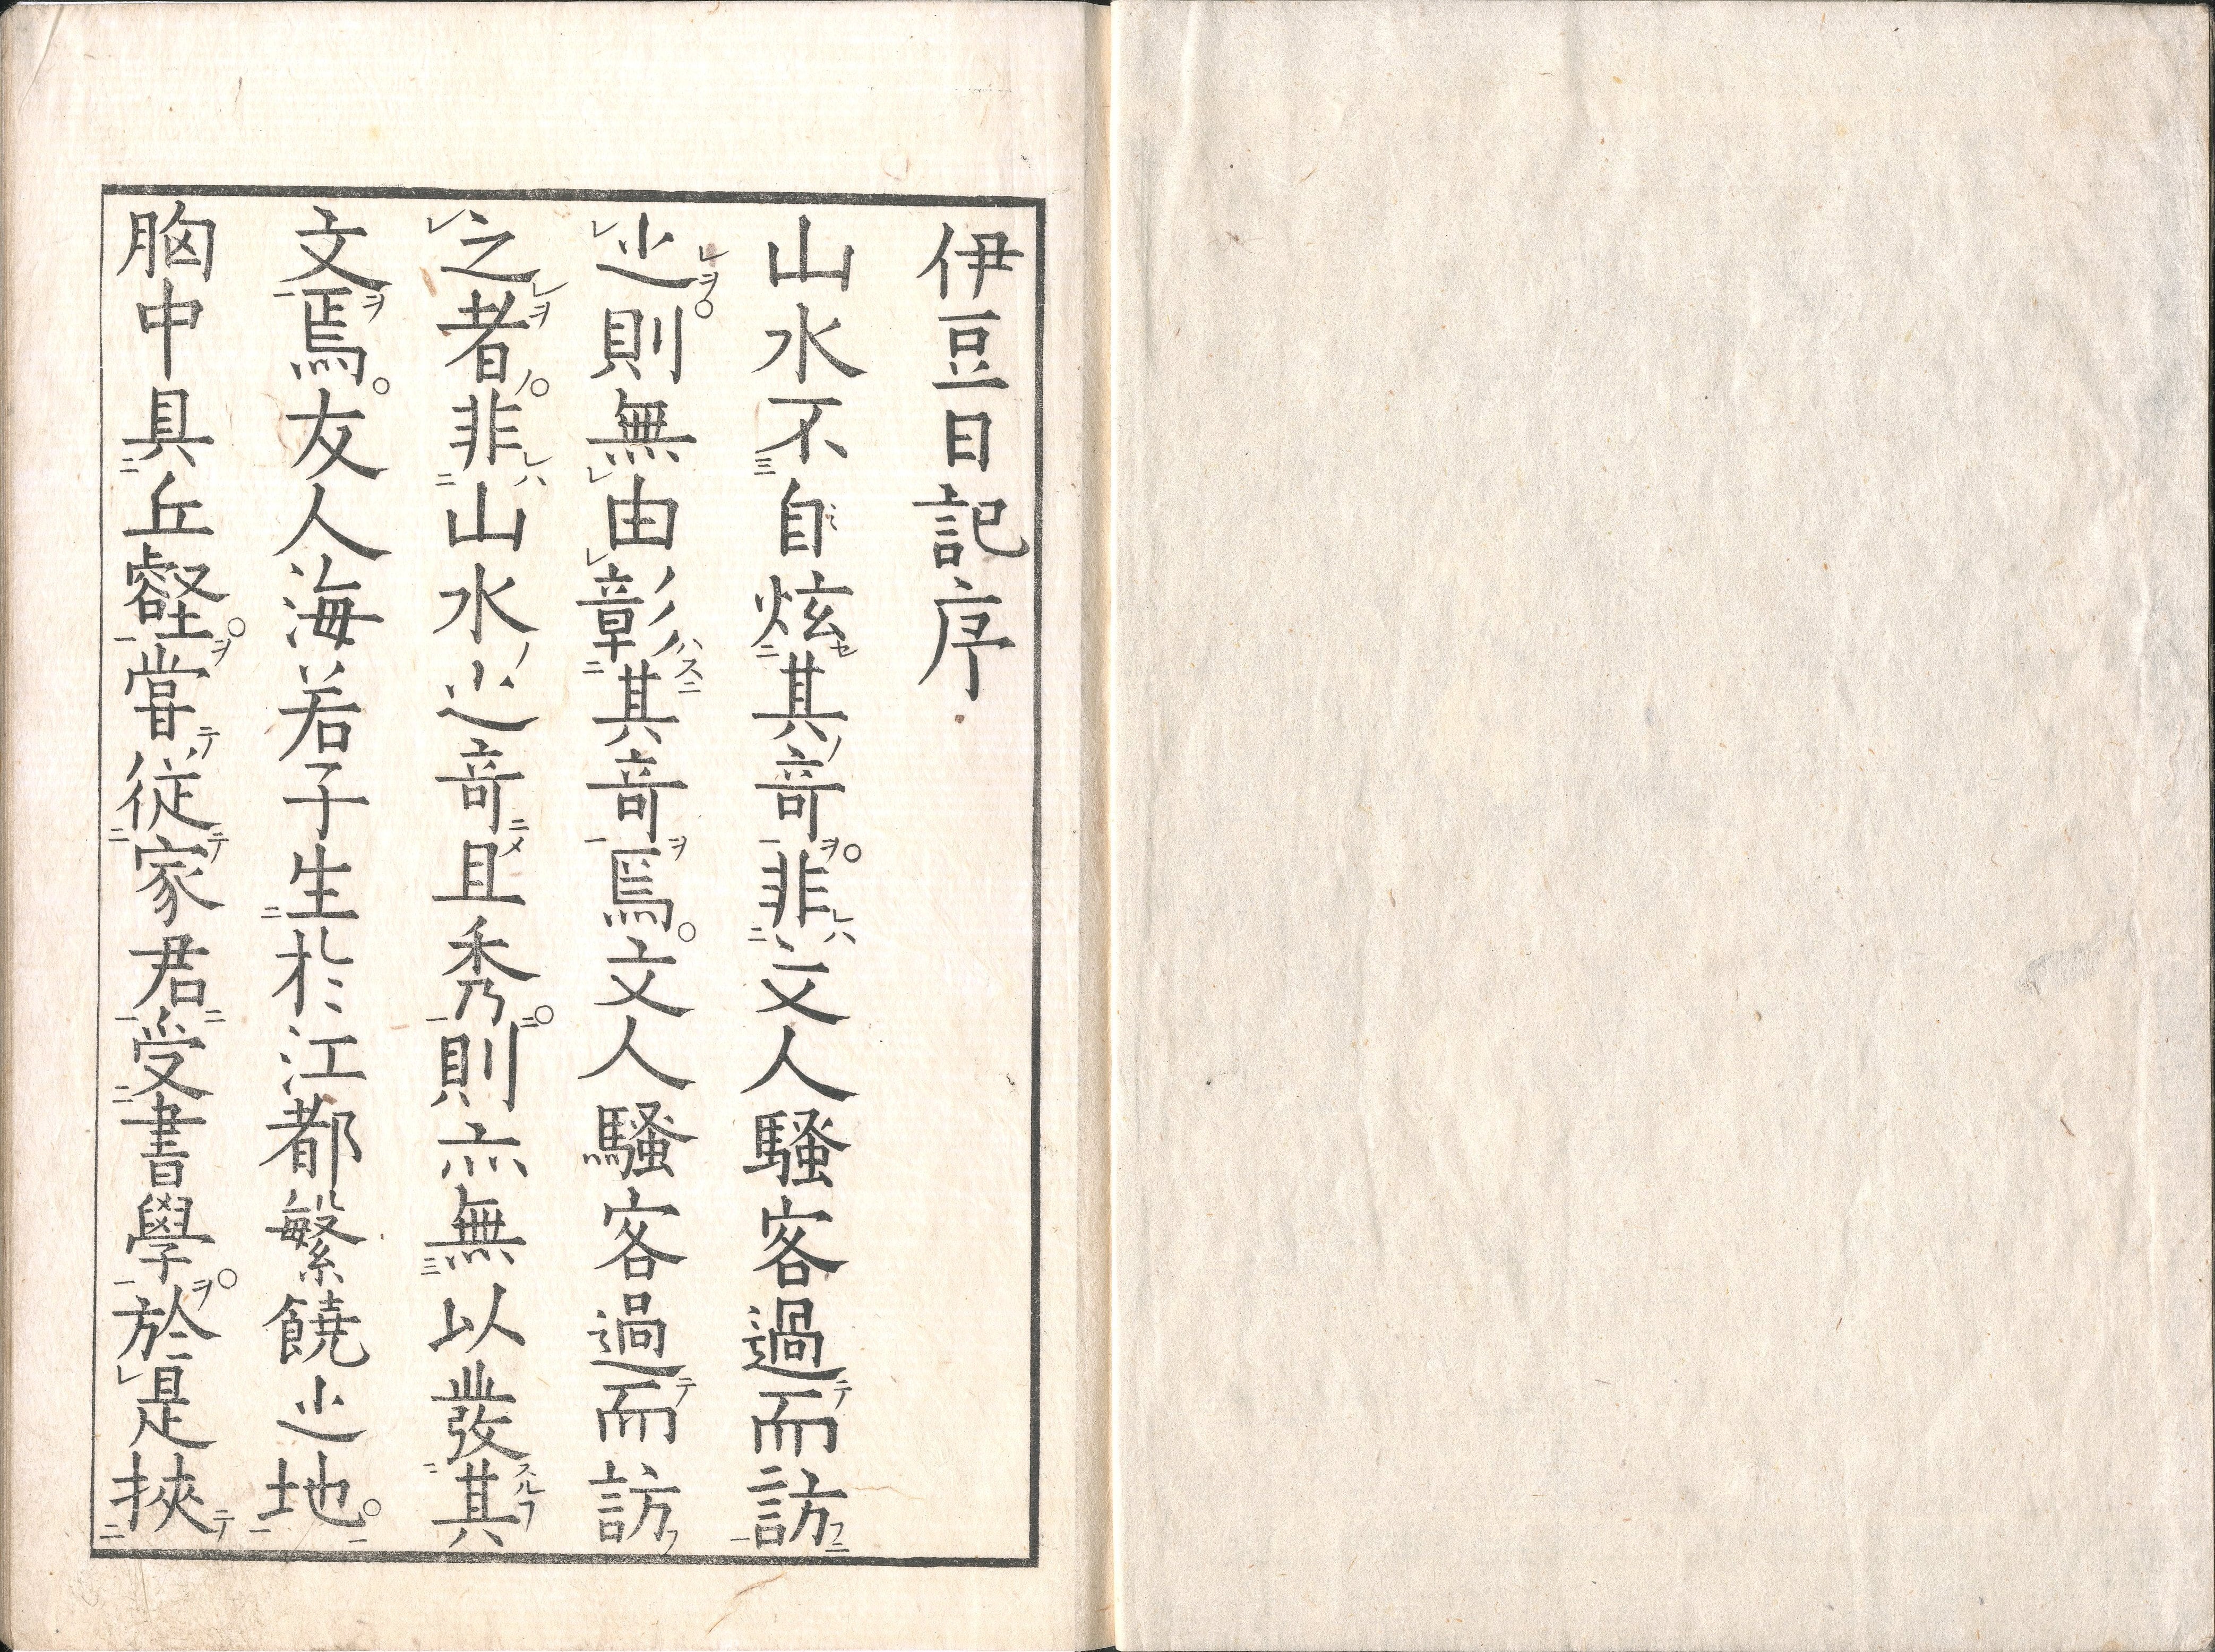 伊豆日記序
山水不自炫其竒非文人騷客過而訪
之則無由彰其竒焉文人騷客過而訪
之者非山水之竒且秀則亦無以發其
文焉友人海若子生於江都繁饒之地
胸中具丘壑嘗從家君受書學於是挾